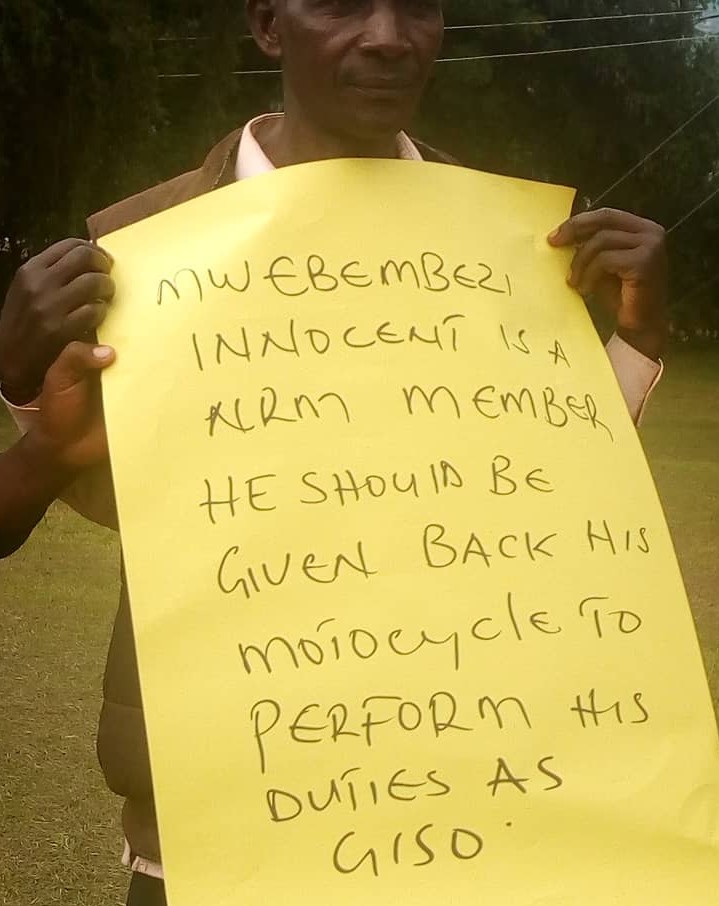 MWEBEMBEZI
INNOCENT IS A
NRM MEMBER
HE SHOULD BE
GIVEN BACK HIS
MOTOCYCLE TO
PERFORM HIS
DUTIES AS
GISO.